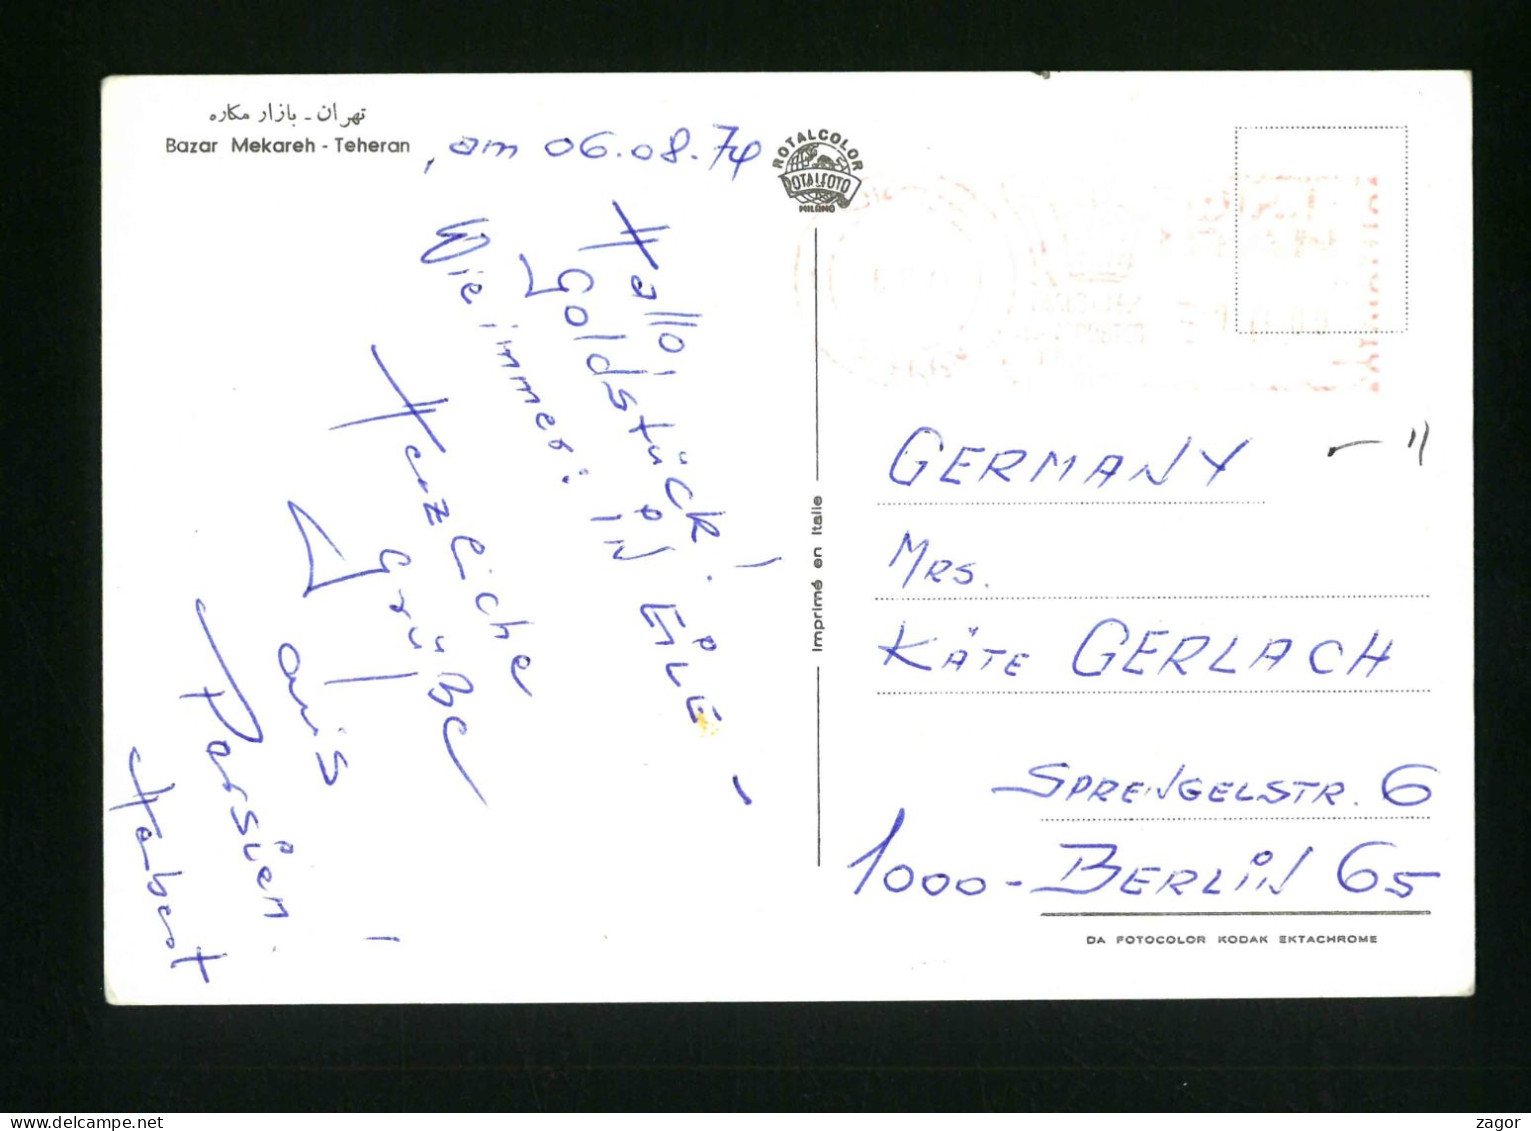 تهران - بازار مکاره
Bazar Mekareh - Teheran
, am 06.08.74
Hallo,
Goldstück!
Wie immer: IN EILE -
Herzliche
Grüße
aus
Persien!
Herbert
ROTALCOLOR
ROTALFOTO
MILANO
Imprimé en Italie
GERMANY
MRS.
KÄTE GERLACH
SPRENGELSTR. 6
1000 - BERLIN 65
DA FOTOCOLOR KODAK EKTACHROME
www.delcampe.net
zagor